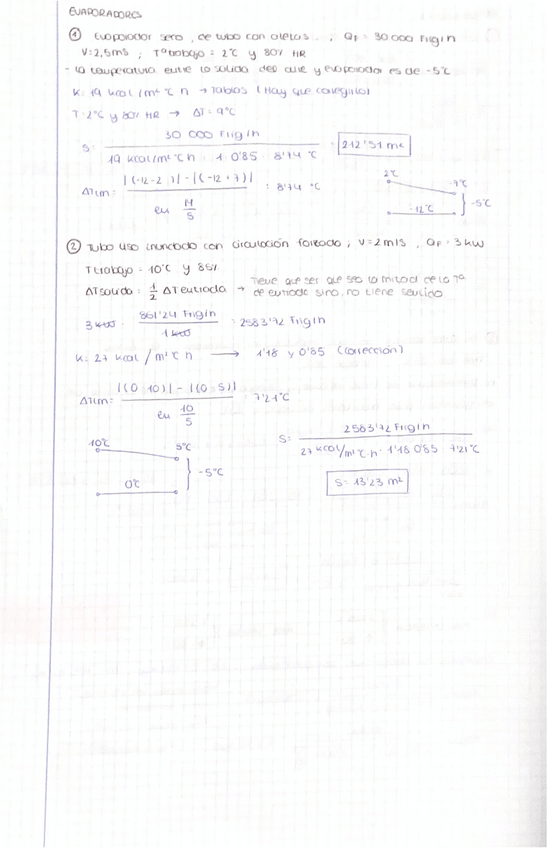 EVAPORADORES
① Evaporador seco, de tubo con aletas. , QF = 30 000 Frig/h
V=2,5m/s ; Tª trabajo = 2°C y 80% HR
- La temperatura entre la salida del aire y evaporador es de -5°C
K: 19 kcal/m²°C h → Tablas (Hay que corregirlo)
T: 2°C y 80% HR → ΔT = 9°C
S: 30 000 Frig/h / 19 kcal/m²°C h · 1 · 0'85 · 8'74 °C : 212'51 m²
ΔTlm: |(-12-2)| - |(-12+7)| / ln 14/5 : 8'74 °C
2°C -7°C
-12°C } -5°C
② Tubo liso inundado con circulación forzada, V=2m/s, QF = 3 kW
T trabajo = 10°C y 85%
ΔT salida : 1/2 ΔT entrada → Tiene que ser que sea la mitad de la Tª
de entrada sino, no tiene sentido
3 kW · 861'24 Frig/h / 1 kW : 2583'72 Frig/h
K: 27 kcal/m²°C h → 1'18 y 0'85 (corrección)
ΔTlm = |(0-10)| - |(0-5)| / ln 10/5 : 7'21°C
10°C 5°C
0°C } -5°C
S: 2583'72 Frig/h / 27 kcal/m²°C·h · 1'18 · 0'85 · 7'21°C
S: 13'23 m²